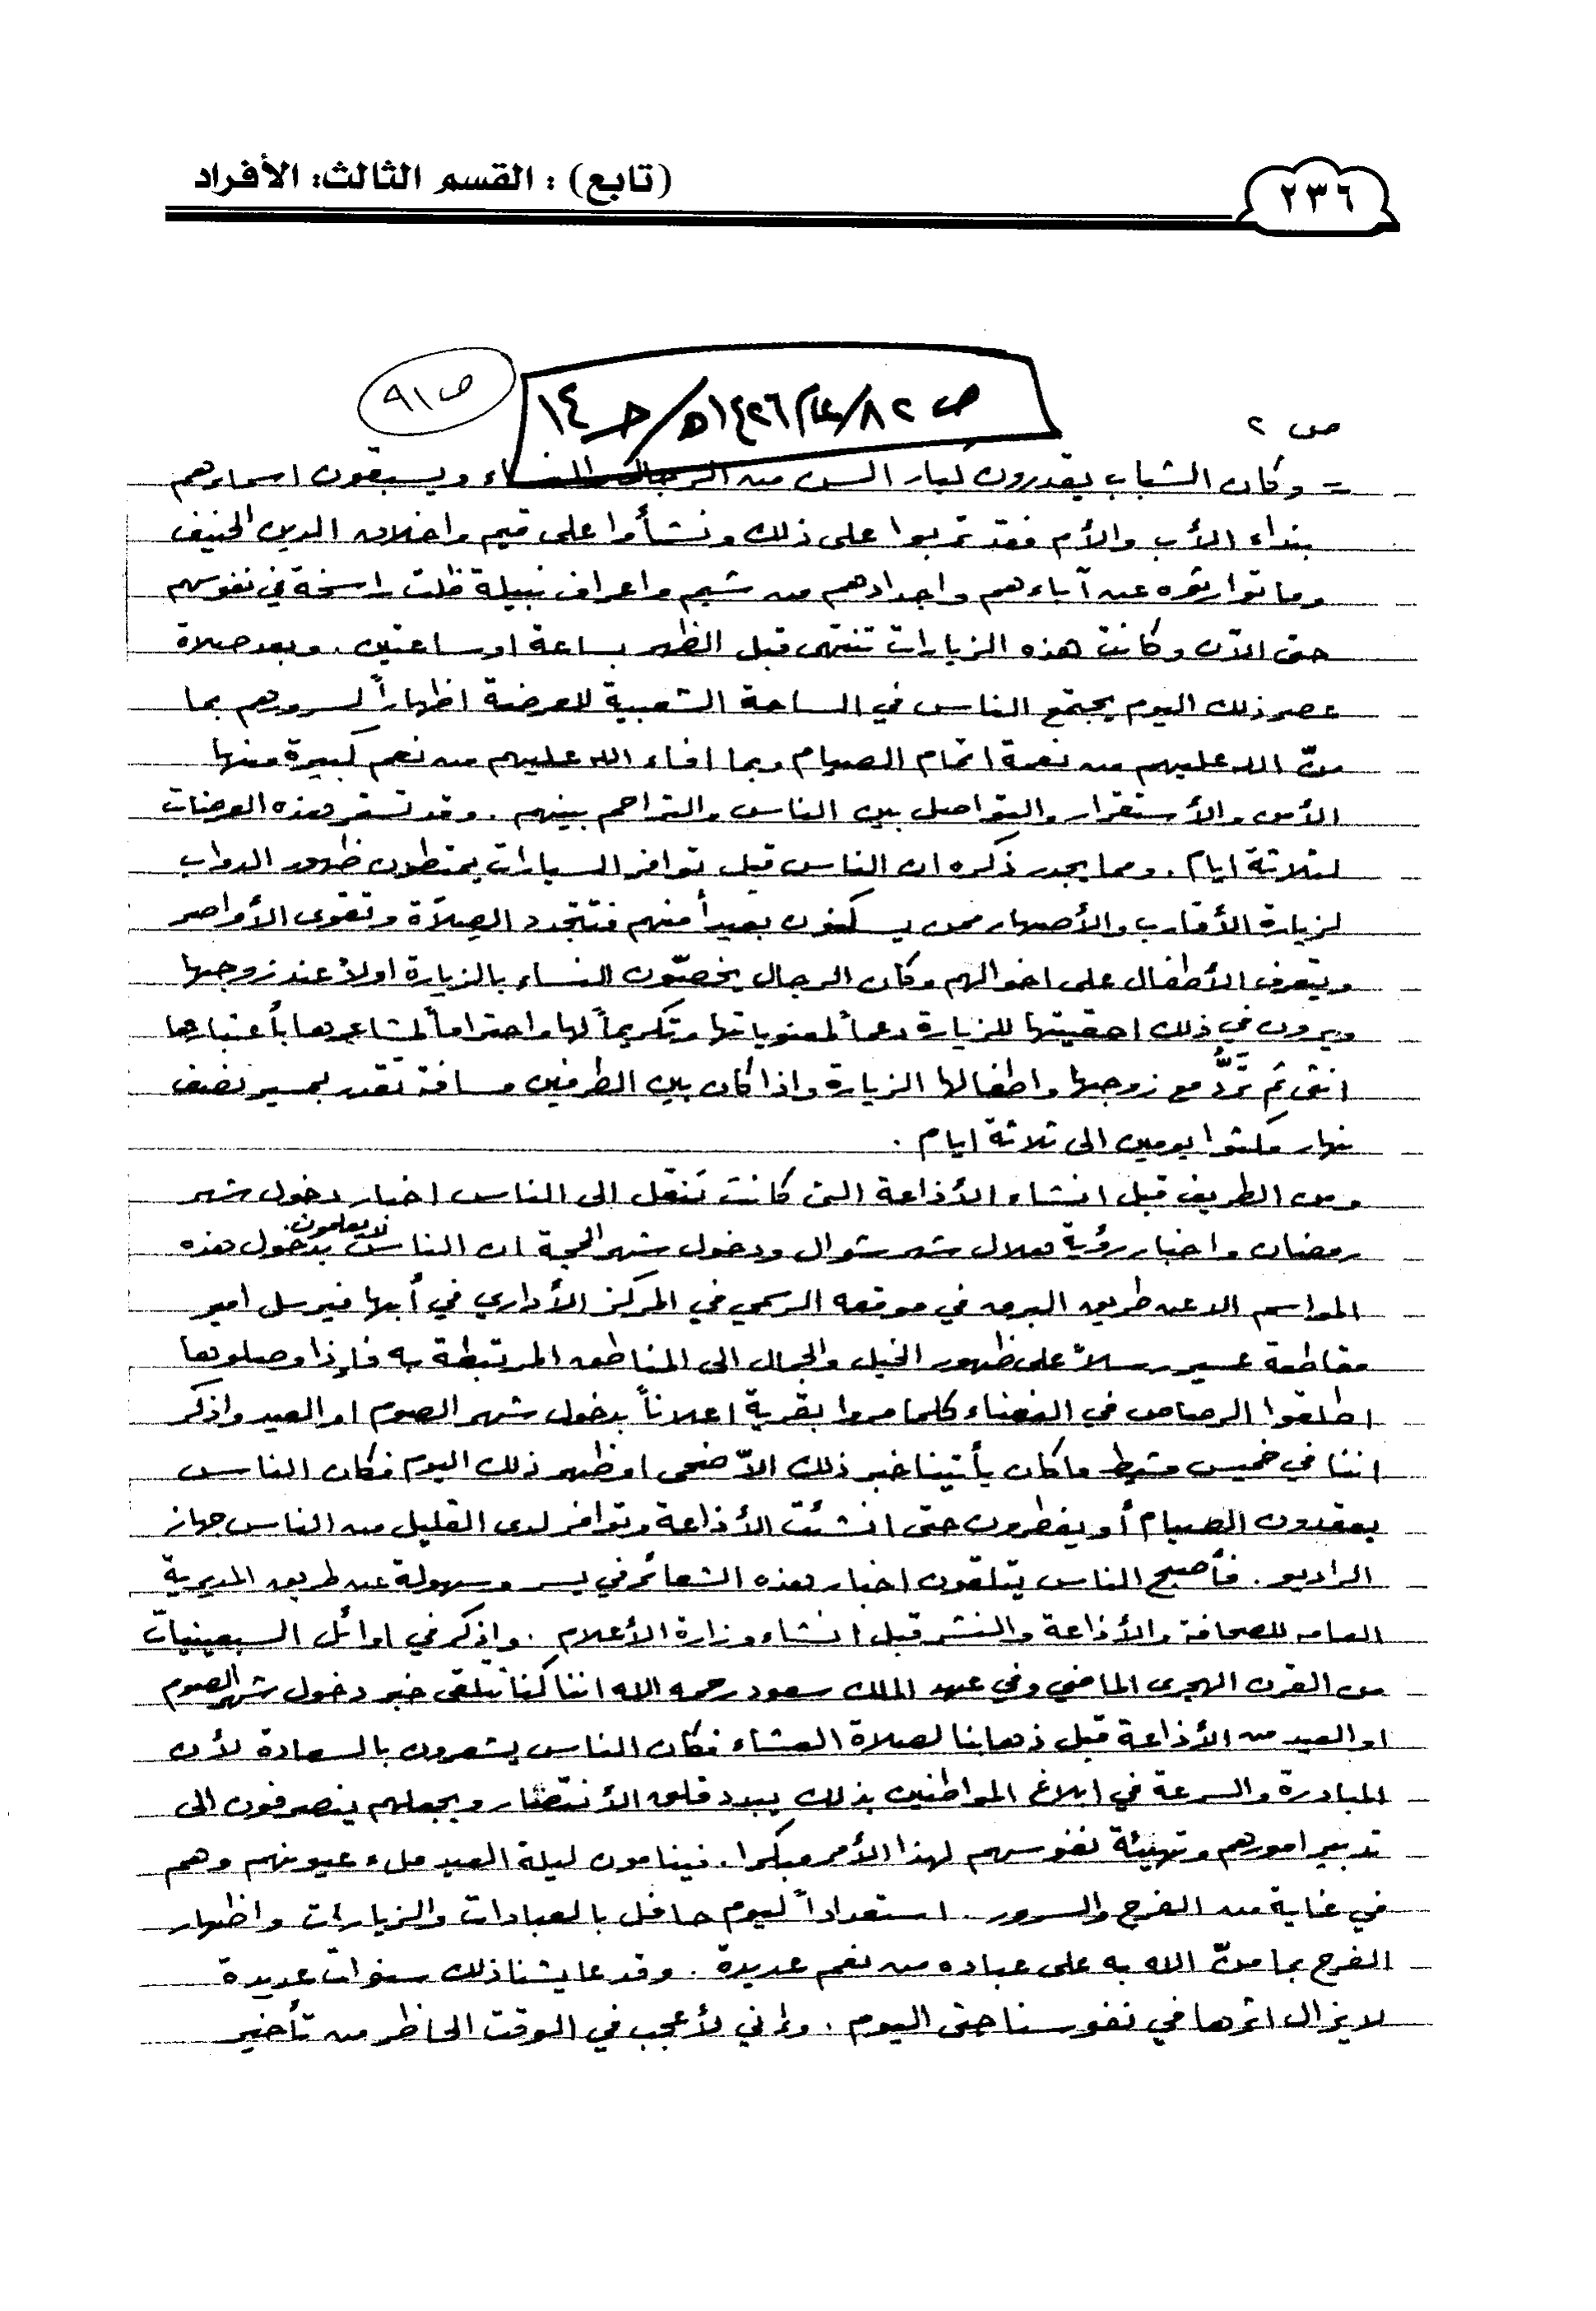 ٢٣٦
(تابع) : القسم الثالث: الأفراد
ص ٩١
ص ٢
= وكان الشباب يقدرون كبار السن من الرجال والنساء ويسبقون اسماءهم
بنداء الأب والأم فقد تربوا على ذلك ونشأوا على قيم واخلاق الدين الحنيف
وما توارثوه عن آباءهم واجدادهم من شيم واعراف نبيلة ظلت راسخة في نفوسهم
حتى الآن وكانت هذه الزيارات تنتهي قبل الظهر بساعة او ساعتين . وبعد صلاة
عصر ذلك اليوم يجتمع الناس في الساحة الشعبية للعرضة اظهاراً لسرورهم بما
منّ الله عليهم من نعمة اتمام الصيام وبما افاء الله عليهم من نعم كبيرة منها
الأمن والأستقرار والتواصل بين الناس والتراحم بينهم . وقد تستمر هذه العرضات
لثلاثة ايام . ومما يجدر ذكره ان الناس قبل توافر السيارات يمتطون ظهور الدواب
لزيارة الأقارب والأصهار ممن يسكنون بعيداً منهم فتتجدد الصلاة وتقوى الأواصر
ويتعرف الأطفال على اخوالهم وكان الرجال يخصّون النساء بالزيارة اولاً عند زوجها
ويرون في ذلك احقيتها للزيارة دعماً لمعنوياتها وتكريماً لها واحتراماً لمشاعرها بأعتبارها
انثى ثم تردُّ مع زوجها واطفالها الزيارة واذا كان بين الطرفين مسافة تقدر بمسير نصف
نهار مكثوا يومين الى ثلاثة ايام .
ومن الطريف قبل انشاء الأذاعة التي كانت تنقل الى الناس اخبار دخول شهر
رمضان واخبار رؤية هلال شهر شوال ودخول شهر الحجة ان الناس لا يعلمون بدخول هذه
المواسم الا عن طريق البرق في موقعه الرسمي في المركز الأداري في أبها فيرسل امير
مقاطعة عسير رسلاً على ظهور الخيل والجمال الى المناطق المرتبطة به فإذا وصلوها
اطلقوا الرصاص في الفضاء كلما مروا بقرية اعلاناً بدخول شهر الصوم او العيد واذكر
اننا في خميس مشيط ما كان يأتينا خبر ذلك الاّ ضحى او ظهر ذلك اليوم فكان الناس
يعقدون الصيام أو يفطرون حتى انشئت الأذاعة وتوافر لدى القليل من الناس جهاز
الراديو . فأصبح الناس يتلقون اخبار هذه الشعائر في يسر وسهولة عن طريق المديرية
العامه للصحافة والأذاعة والنشر قبل انشاء وزارة الأعلام . واذكر في اوائل السبعينيات
من القرن الهجرى الماضي وفي عهد الملك سعود رحمه الله اننا كنا نتلقى خبر دخول شهر الصوم
او العيد من الأذاعة قبل ذهابنا لصلاة العشاء فكان الناس يشعرون بالسعادة لأن
المبادرة والسرعة في ابلاغ المواطنين بذلك يبدد قلق الأنتظار ويجعلهم ينصرفون الى
تدبير امورهم وتهيئة نفوسهم لهذا الأمر مبكرا . فينامون ليلة العيد ملء عيونهم وهم
في غاية من الفرح والسرور . استعداداً ليوم حافل بالعبادات والزيارات واظهار
الفرح بما منّ الله به على عباده من نعم عديدة . وقد عايشنا ذلك سنوات عديدة
لا يزال اثرها في نفوسنا حتى اليوم . وإني لأعجب في الوقت الحاظر من تأخير